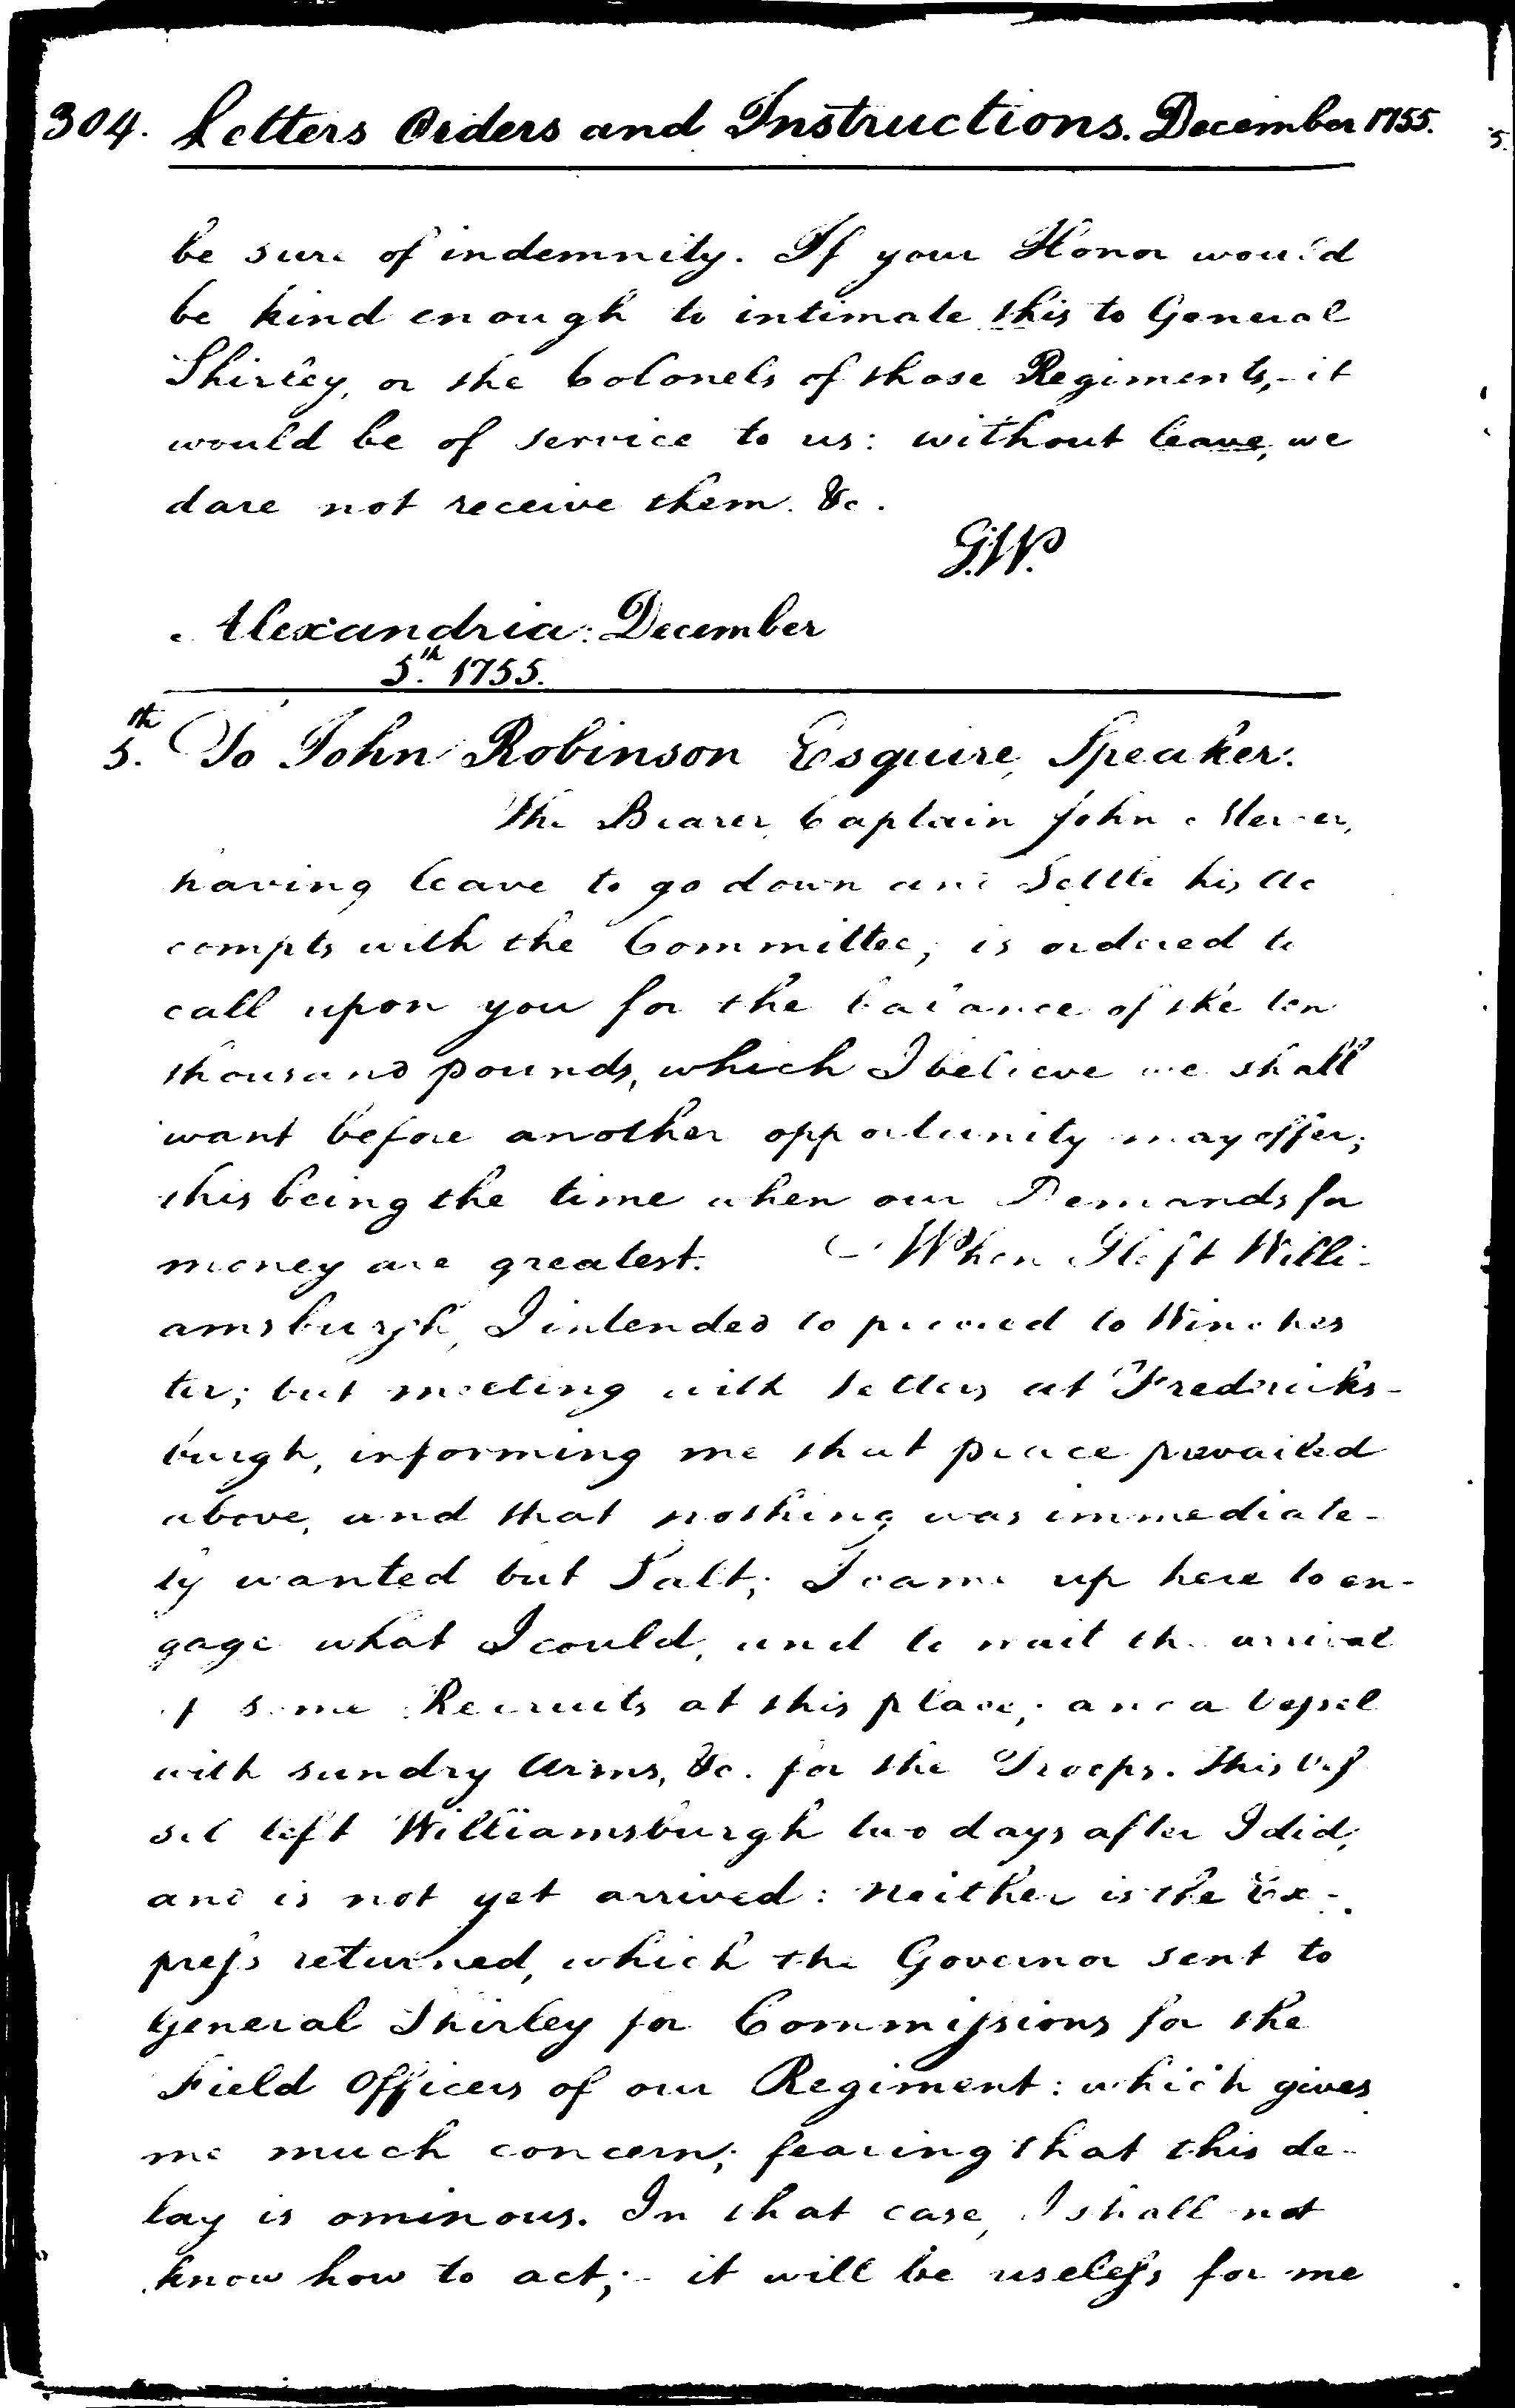 304. Letters Orders and Instructions. December 1755.
be sure of indemnity. If your Honor would
be kind enough to intimate this to General
Shirley, or the Colonels of those Regiments,- it
would be of service to us: without leave, we
dare not receive them. &c.
G.W.
Alexandria: December
5.th 1755.
5.th To John Robinson Esquire, Speaker.
The Bearer, Captain John Mercer,
having leave to go down and Settle his Ac
compts with the Committee, is ordered to
call upon you for the balance of the ten
thousand pounds, which I believe we shall
want before another opportunity may offer;
this being the time when our Demands for
money are greatest. When I left Willi-
amsburgh, I intended to proceed to Winches
ter; but meeting with letters at Fredericks-
burgh, informing me that peace prevailed
above, and that nothing was immediate-
ly wanted but Salt; I came up here to en-
gage what I could, and to wait the arrival
of some Recruits at this place; and a Vessel
with sundry Arms, &c. for the Troops. This Ves
sel left Williamsburgh two days after I did;
and is not yet arrived: neither is the Ex-
press returned, which the Governor sent to
General Shirley for Commissions for the
Field Officers of our Regiment: which gives
me much concern; fearing that this de-
lay is ominous. In that case, I shall not
know how to act;- it will be useless for me